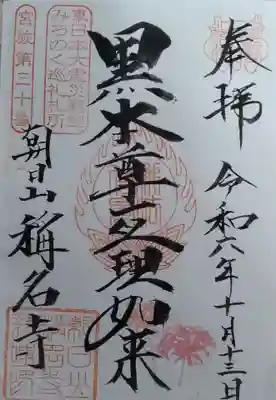 奉拝
令和六年十月十三日
黒本尊 如来
東日本大震災
みちのく巡礼札所
宮城第三十
朝日山 称名寺